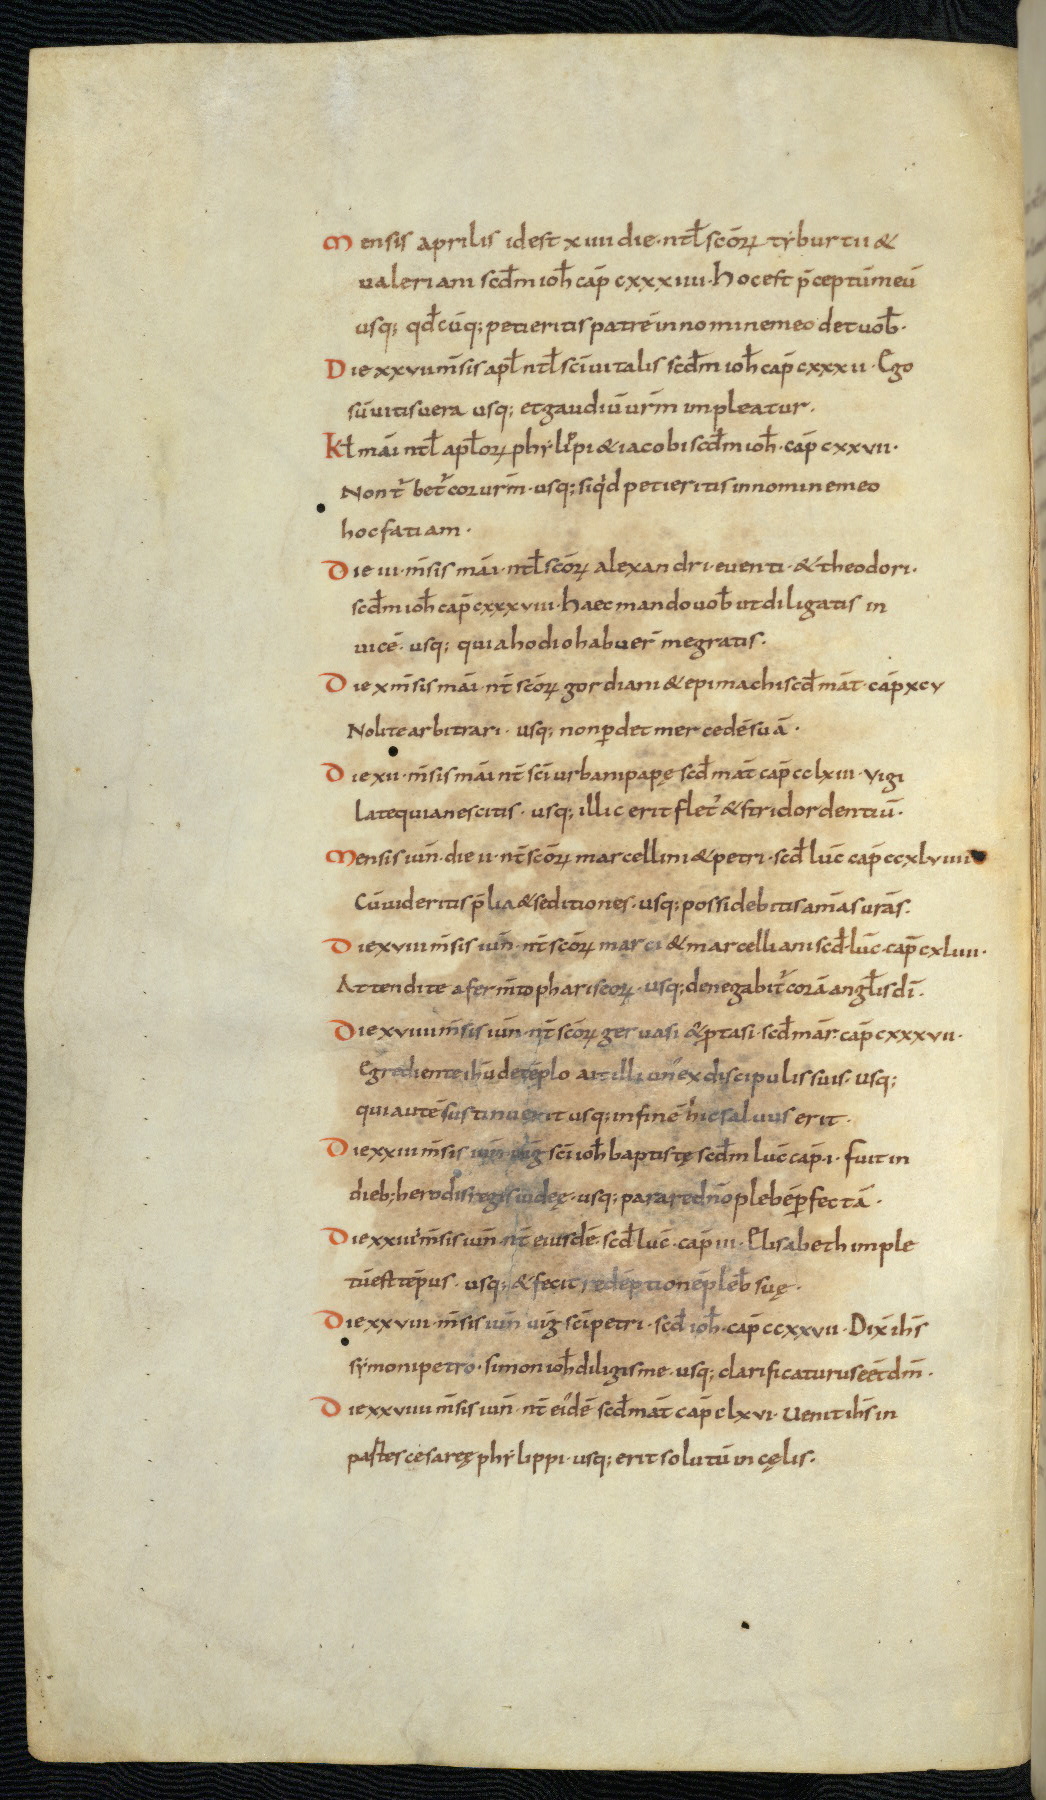 Mensis aprilis idest xiiii die · ntł scōꝝ tẏburtii &
ualeriani scđm ioħ cap̄ cxxxiiii · Hoc est p̄ceptū meū
usq; qđcūq; petieritis patrē in nomine meo det uob̄ ·
Die xxviii m̄sis apł ntł sc̄i uitalis scđm ioħ cap̄ cxxxii · Ego
sū uitis uera usq; et gaudiū urm̄ impleatur ·
Kł mai ntł apłoꝝ phẏlippi & iacobi scđm ioħ · cap̄ cxxvii ·
Non t̄ bet᷒ cor urm̄ · usq; siqđ petieritis in nomine meo
hoc fatiam ·
Die iii · m̄sis mai · ntł scōꝝ alexandri · euenti · & theodori ·
scđm ioħ cap̄ cxxxviii · Haec mando uob̄ ut diligatis in
uicē · usq; quia hodio habuer̄ me gratis ·
Die x m̄sis mai · nt̄ scōꝝ gordiani & epimachi scđ māt · cap̄ xcv
Nolite arbitrari · usq; non ꝑdet mercedē suā ·
Die xii · m̄sis mai nt̄ sc̄i urbani papę scđ māt cap̄ cclxiii · Vigi
late quia nescitis · usq; illic erit flet᷒ & stridor dentiū ·
Mensis iun̄ · die ii · nt̄ scōꝝ marcellini & petri · scđ luc̄ cap̄ ccxlviiii
Cū uideritis p̄lia & seditiones · usq; possidebitis anīas urās ·
Die xviii m̄sis iun̄ · nt̄ scōꝝ marci & marcelliani scđ · luc̄ · cap̄ cxliiii ·
Attendite a ferm̄to phariseoꝝ · usq; denegabit᷒ corā angłis dī ·
Die xviiii m̄sis iun̄ · nt̄ scōꝝ geruasi & ꝓtasi · scđ mār · cap̄ cxxxvii ·
Egrediente ihū de tēplo ait illi un᷒ ex discipulis suis · usq;
qui autē sustinuerit usq; in finē hic saluus erit ·
Die xxiii m̄sis iun̄ uiḡ sc̄i ioħ baptistę scđm luc̄ cap̄ · i · Fuit in
dieb; herodis regis iudeę · usq; parare dn̄o plebē ꝑfectā ·
Die xxiiii m̄sis iun̄ · nt̄ eiusdē · scđ luc̄ · cap̄ iii · Elisabeth imple
tū est tēpus · usq; & fecit redēptionē pleb̄ suę ·
Die xxviii · m̄sis iun̄ uiḡ sc̄i petri · scđ ioħ · cap̄ ccxxvii · Dix̄ ihs̄
sẏmoni petro · simon ioħ diligis me · usq; clarificaturus eēt dm̄ ·
Die xxviiii m̄sis iun̄ · nt̄ ei᷒dē scđ māt cap̄ clxvi · Uenit ihs̄ in
partes cesareę phẏlippi · usq; erit solutū in cęlis ·